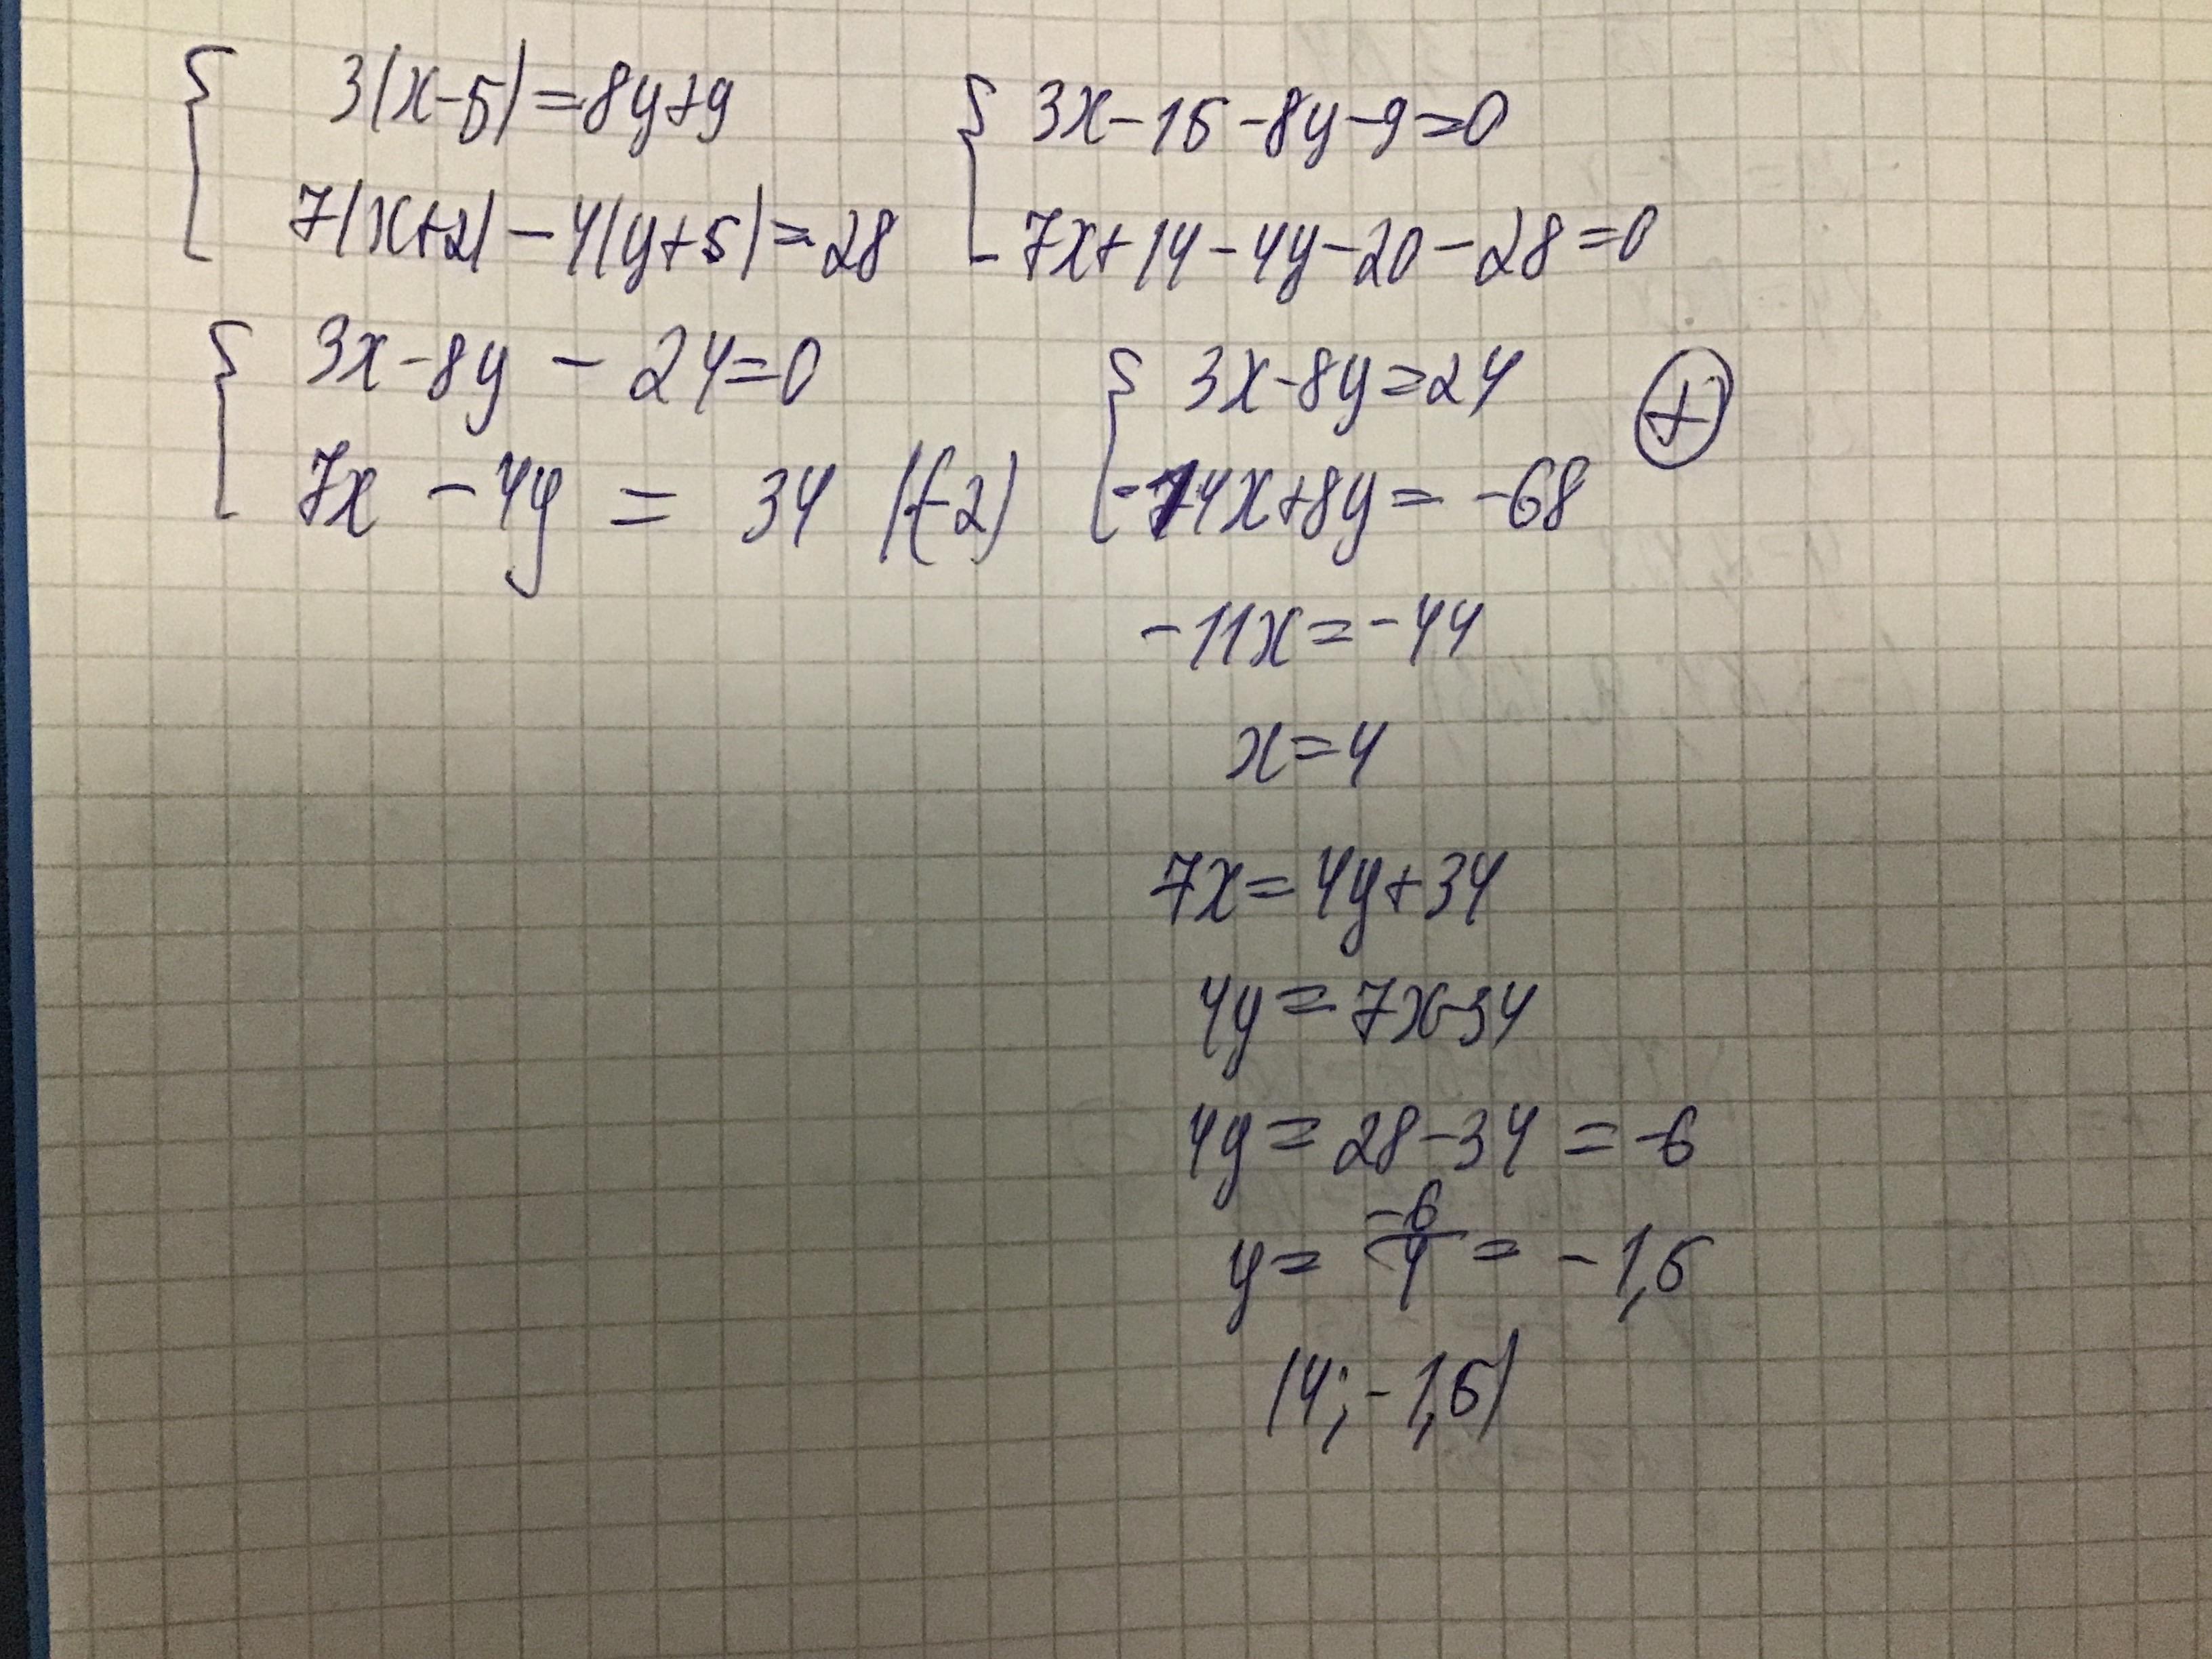 { 3(x-5)=8y+9
7(x+2)-4(y+5)=28
{ 3x-15-8y-9=0
7x+14-4y-20-28=0
{ 3x-8y-24=0
7x-4y=34 |(-2)
{ 3x-8y=24
-14x+8y=-68
+
-11x=-44
x=4
7x=4y+34
4y=7x-34
4y=28-34=-6
y=-6/4=-1,5
(4;-1,5)